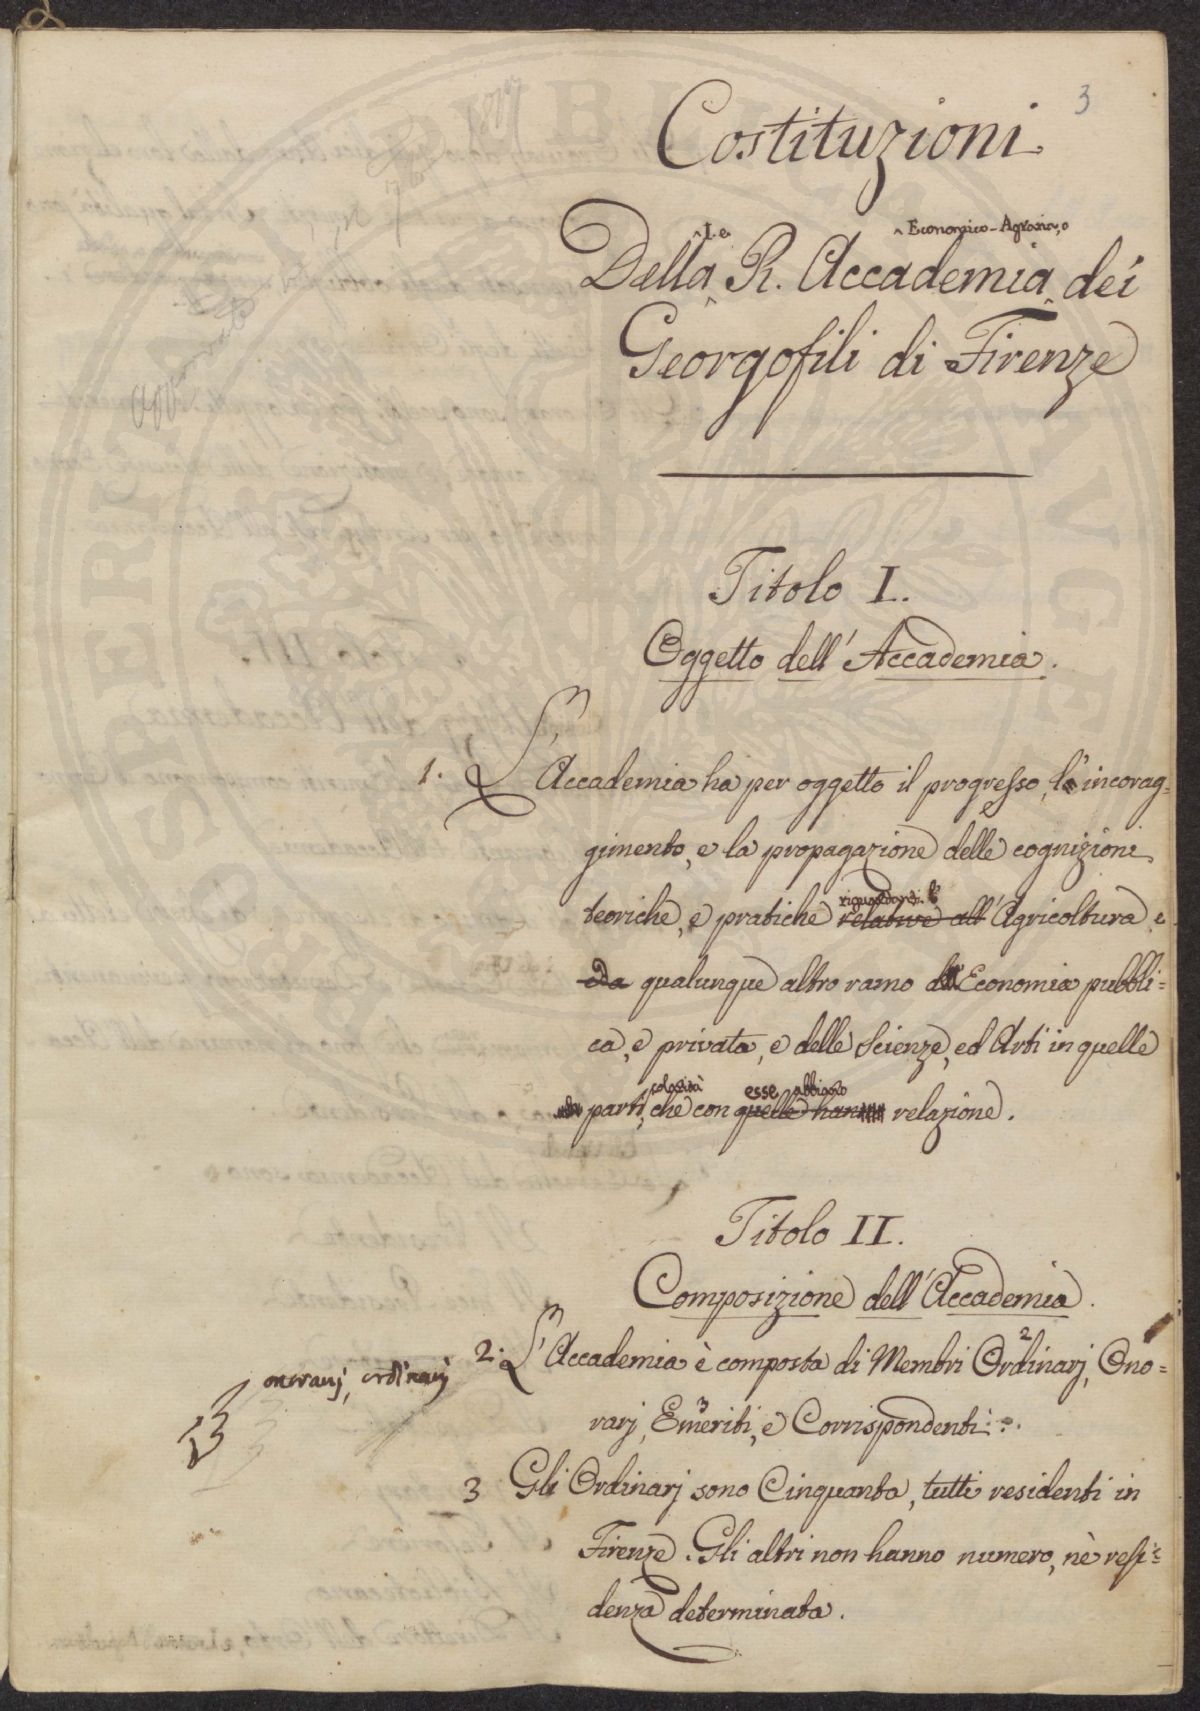 3
Costituzioni
I. e Economico-Agraria
Della R. Accademia dei
Georgofili di Firenze
Titolo I.
Oggetto dell'Accademia.
1. L'Accademia ha per oggetto il progresso, l'incorag=
gimento, e la propagazione delle cognizioni
riguardanti l'
teoriche, e pratiche relative all'Agricoltura e
ed a qualunque altro ramo d'Economia pubbli=
ca, e privata, e delle Scienze, ed Arti in quelle
esse abbiano
parti, che con quelle hanno relazione.
Titolo II.
Composizione dell'Accademia.
2. L'Accademia è composta di Membri Ordinarj, Ono=
2
onorarj, ordinarj
rarj, Emeriti, e Corrispondenti.
3
3 Gli Ordinarj sono Cinquanta, tutti residenti in
Firenze. Gli altri non hanno numero, nè resi=
denza determinata.